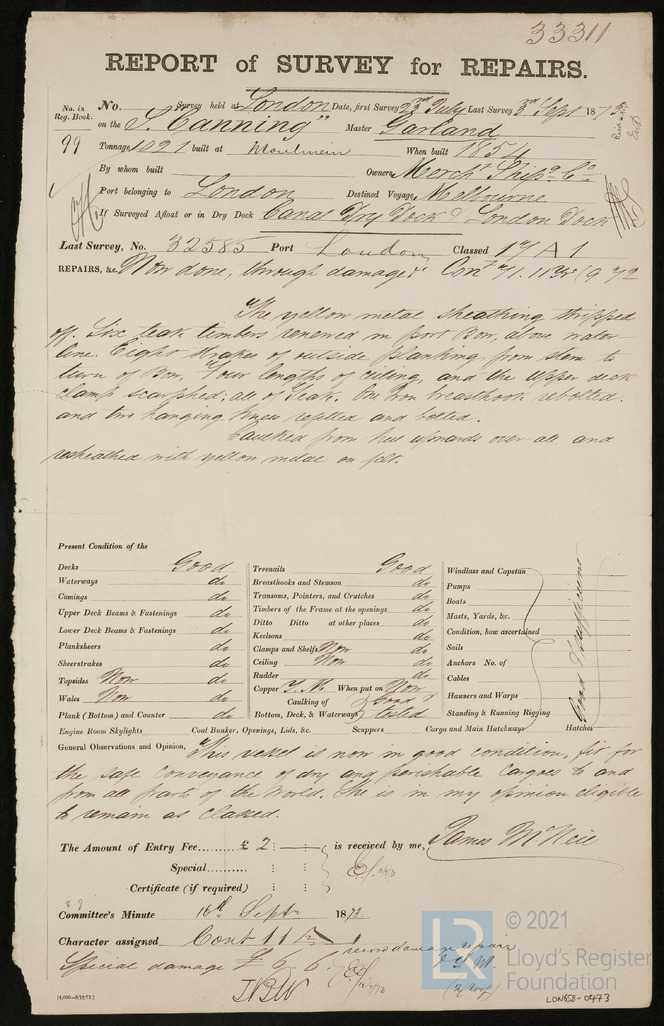 33311
REPORT of SURVEY for REPAIRS.
No. in Reg. Book. No. Survey held at London Date, first Survey 23rd July Last Survey 3rd Sept 1873
on the S. "Canning" Master Garland
99 Tonnage 1091 built at Moulmein When built 1854
By whom built Owners Mercht. Shipg. Co.
Port belonging to London Destined Voyage Melbourne
If Surveyed Afloat or in Dry Dock Canal Dry Dock & London Dock
Last Survey, No. 32585 Port London Classed 17 A 1
REPAIRS, &c. Now done, through damage:
The yellow metal sheathing stripped
off. Six teak timbers renewed in port Bow, above water
line. Eight strakes of outside planking from stem to
turn of Bow, Four lengths of ceiling, and the Upper deck
Clamp scarphed; all of Teak. One Iron breasthook rebolted.
and two hanging knees refitted and bolted.
Caulked from keel upwards over all and
resheathed with yellow metal on felt.
Present Condition of the
Decks Good
Waterways do
Comings do
Upper Deck Beams & Fastenings do
Lower Deck Beams & Fastenings do
Planksheers do
Sheerstrakes do
Topsides Now do
Wales Now do
Plank (Bottom) and Counter do
Treenails Good
Breasthooks and Stemson do
Transoms, Pointers, and Crutches do
Timbers of the Frame at the openings do
Ditto Ditto at other places do
Keelsons do
Clamps and Shelfs Now do
Ceiling Now do
Rudder do
Copper Y.M. When put on Now
Caulking of Bottom, Deck, & Waterways Good & tested
Windlass and Capstan
Pumps
Boats
Masts, Yards, &c.
Condition, how ascertained
Sails
Anchors No. of
Cables
Hawsers and Warps
Standing & Running Rigging
Good & Sufficient
Engine Room Skylights Coal Bunker, Openings, Lids, &c. Scuppers Cargo and Main Hatchways Hatches
General Observations and Opinion, This vessel is now in good condition, fit for
the safe conveyance of dry and perishable Cargoes to and
from all parts of the World. She is in my opinion eligible
to remain as classed.
The Amount of Entry Fee......... £ 2 : : is received by me, James McNeil
Special.......... : :
Certificate (if required) : :
Committee's Minute 16th Septr 1873.
Character assigned Cont
record damage repair
Special damage £ 6 . 6
[4,000—8/12/72.]
© 2021
LR
Lloyd's Register
Foundation
LON658-0473